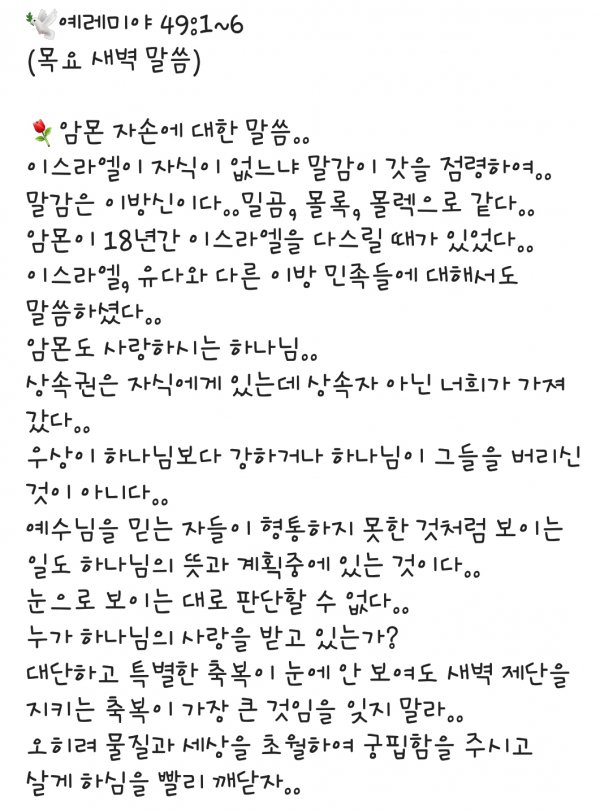 🕊예레미야 49:1~6
(목요 새벽 말씀)
🌹암몬 자손에 대한 말씀..
이스라엘이 자식이 없느냐 말감이 갓을 점령하여..
말감은 이방신이다..밀곰, 몰록, 몰렉으로 같다..
암몬이 18년간 이스라엘을 다스릴 때가 있었다..
이스라엘, 유다와 다른 이방 민족들에 대해서도
말씀하셨다..
암몬도 사랑하시는 하나님..
상속권은 자식에게 있는데 상속자 아닌 너희가 가져
갔다..
우상이 하나님보다 강하거나 하나님이 그들을 버리신
것이 아니다..
예수님을 믿는 자들이 형통하지 못한 것처럼 보이는
일도 하나님의 뜻과 계획중에 있는 것이다..
눈으로 보이는 대로 판단할 수 없다..
누가 하나님의 사랑을 받고 있는가?
대단하고 특별한 축복이 눈에 안 보여도 새벽 제단을
지키는 축복이 가장 큰 것임을 잊지 말라..
오히려 물질과 세상을 초월하여 궁핍함을 주시고
살게 하심을 빨리 깨닫자..